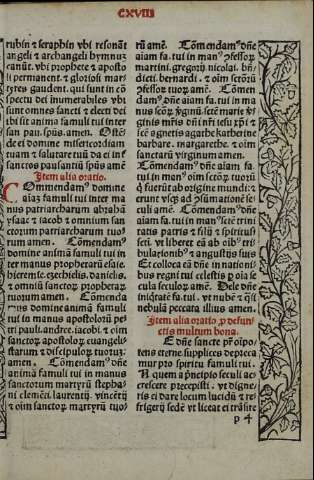 CXVIII
rubin ⁊ seraphin vbi resonāt
angeli ⁊ archangeli hymnuȝ
canūt. vbi prophete ⁊ aposto
li permanent. ⁊ gloriosi mar-
tyres gaudent. qui sunt in cō
spectu dei inumerabiles vbi
sunt omnes sancti ⁊ electi dei
ibi sit anima famuli tui inter
san. pau. spūs. amen. Ostē-
de ei domine misericordiam
tuam ⁊ salutare tuū da ei inf̄
sanctos pau santiū spūs amē
Item alia oratio.
Commendamꝰ domine
aiaȝ famuli tui inter ma
nus patriarcharum abrahā
ysaac ⁊ iacob ⁊ omnium san
ctorum patriarcharum tuo
rum amen. Cōmendamꝰ
domine animā famuli tui in
ter manus prophetarū esaie.
ieremie. ezechielis. danielis.
⁊ omniū sanctoꝝ prophetaꝝ
tuorum amen. Cōmenda
mꝰ domine animā famuli
tui in manus apostoloꝝ pe-
tri pauli. andree. iacobi. ⁊ oim
sanctoꝝ apostoloꝝ. euangeli-
starum ⁊ discipuloꝝ tuoruȝ.
amen. Commendamꝰ dn̄e
animā famuli tui in manus
sanctorum martyrū stepha-
ni clemētí. laurentij. vincētij
⁊ oim sanctoꝝ martyrū tuo-
rū amē. Cōmendamꝰ dn̄e
aiam fa. tui in manꝰ ꝯfessoꝝ
martini. gregorij. nicolai. bn̄-
dicti. bernardi. ⁊ oim sctōrū
ꝯfessoꝝ tuoꝝ amē. Cōmen
damꝰ dn̄e aiam fa. tui in ma
nus scāꝝ v̄ginū. scte marie v̄-
ginis mr̄is dn̄i nr̄i iesu xp̄i ⁊
sce agnetis agathe katherine
barbare. margarethe. ⁊ oim
sanctarū virginum amen.
Commendamꝰ dn̄e aiam fa.
tui in manꝰ oim sctōꝝ ⁊ tuoꝝ
q̄ fuerūt ab origine mundi: ⁊
erunt vsqȝ ad ꝯsūmationē se
culi amē. Cōmendamꝰ dn̄e
aiam fa. tui in manꝰ scte trini
tatis patris ⁊ filij ⁊ spiritussci
amē. vt liberet eā ab oībꝰ tri
bulationibꝰ ⁊ angustijs suis
Et collocā eā dn̄e in nationi-
bus regni tui celestis ꝑ oīa se
cula seculoꝝ amē. Dele dn̄e
iniq̄tatē fa. tui. vt nubē ⁊ q̄si
nebulā peccata illius amen.
Item alia oratio ꝓ defun/
ctis multum bona.
E dn̄e sancte pr̄ oīpotēs
eterne supplices depreca
mur pro spiritu famuli tui.
N quem a p̄ncipio seculi ac-
crescere precepisti. vt digne-
ris ei dare locum lucidū ⁊ re
frigerij sedē vt liceat ei trāsire
p 4